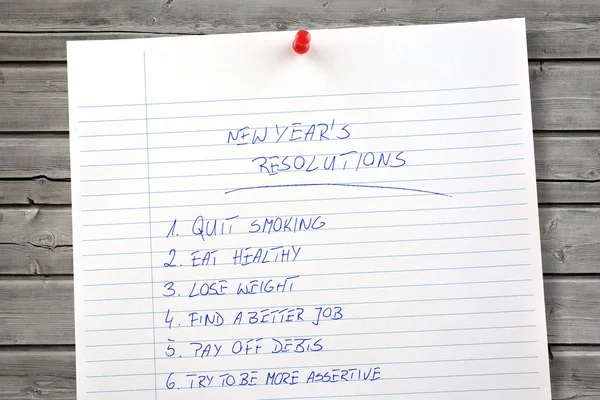 NEW YEAR'S
RESOLUTIONS
1. QUIT SMOKING
2. EAT HEALTHY
3. LOSE WEIGHT
4. FIND A BETTER JOB
5. PAY OFF DEBTS
6. TRY TO BE MORE ASSERTIVE